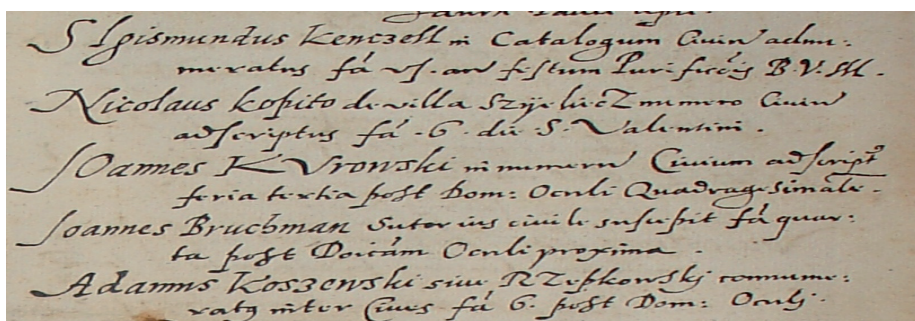 SIgismundus Kenczell in Catalogum Civiū adnu:
meratus fá vj. an festum Purificōis B. V. M.
Nicolaus Kopito de villa numero Civiū
adscriptus fá. 6. die S. Valentini.
IOannes KVrowski in numerū Civium adscript9
feria tertia post Dom: Oculi Quadragesimale.
Joannes Bruchman Sutor ius civile suscepit fá quar:
ta post Doicám Oculi proxima.
Adamus Koszewski sive RZepkowskj connume:
rat9 inter Cives fá 6. post Dom: Oculj.